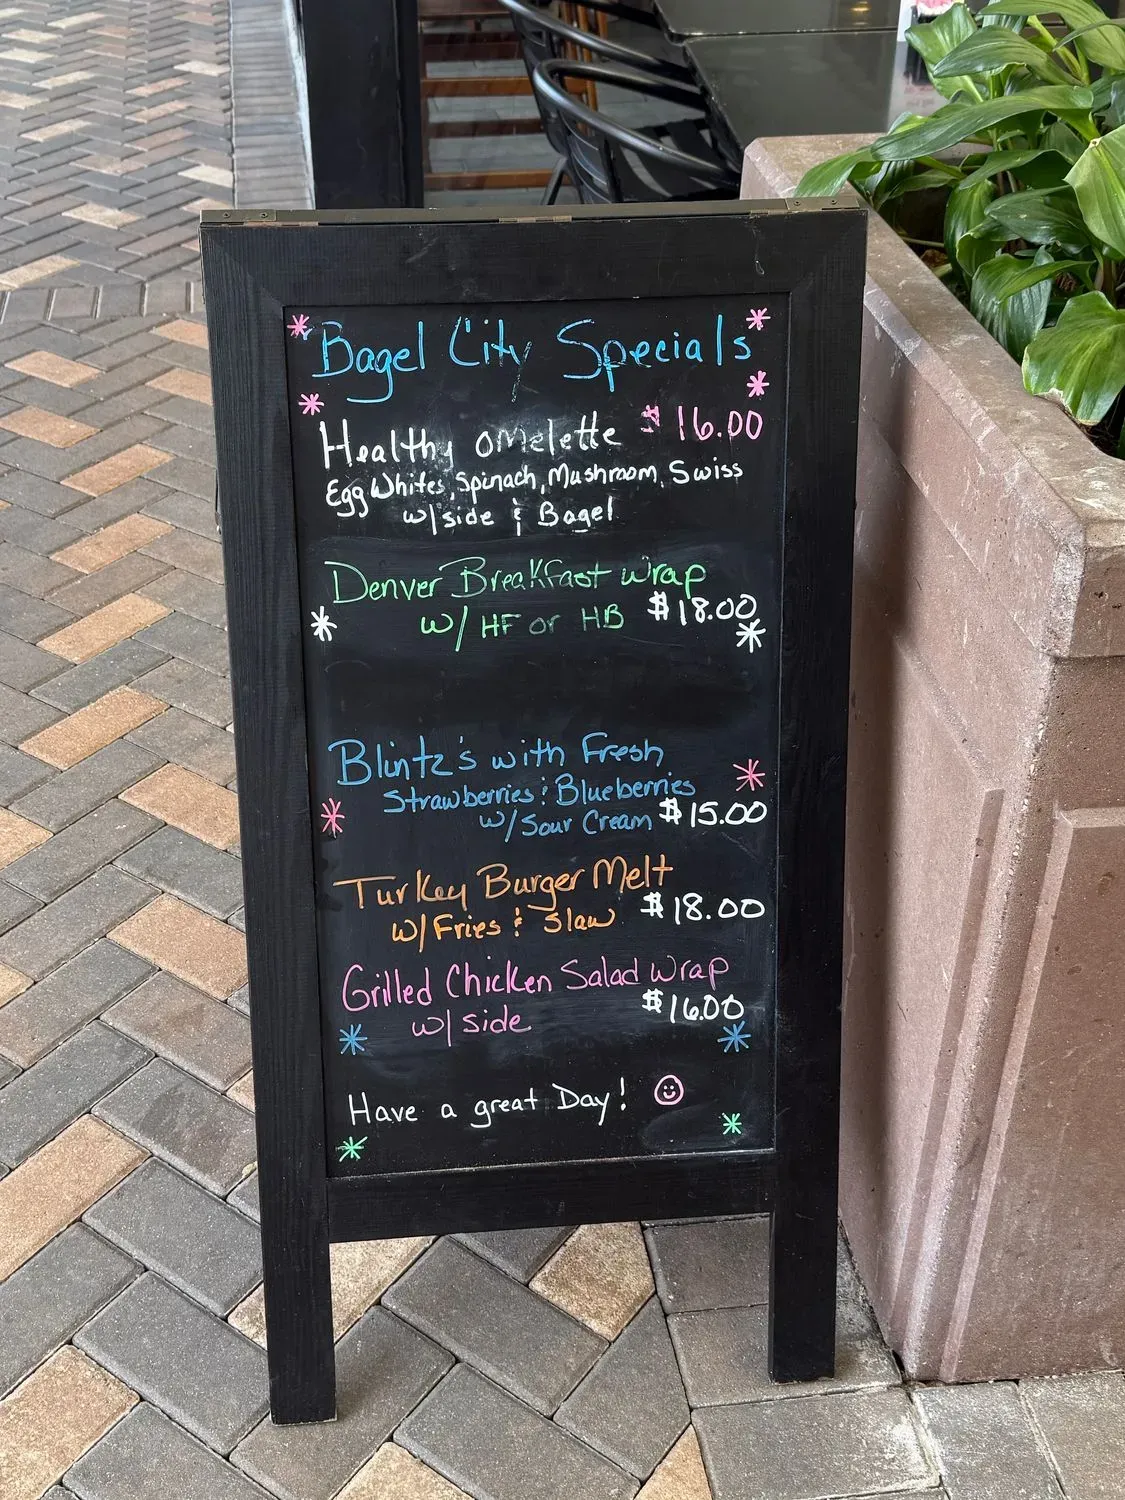 Bagel City Specials
Healthy Omelette $16.00
Egg Whites, Spinach, Mushroom, Swiss
w/side & Bagel
Denver Breakfast Wrap
w/ HF or HB $18.00
Blintz's with Fresh
Strawberries & Blueberries
w/Sour Cream $15.00
Turkey Burger Melt
w/Fries & Slaw $18.00
Grilled Chicken Salad Wrap
w/side $16.00
Have a great Day!